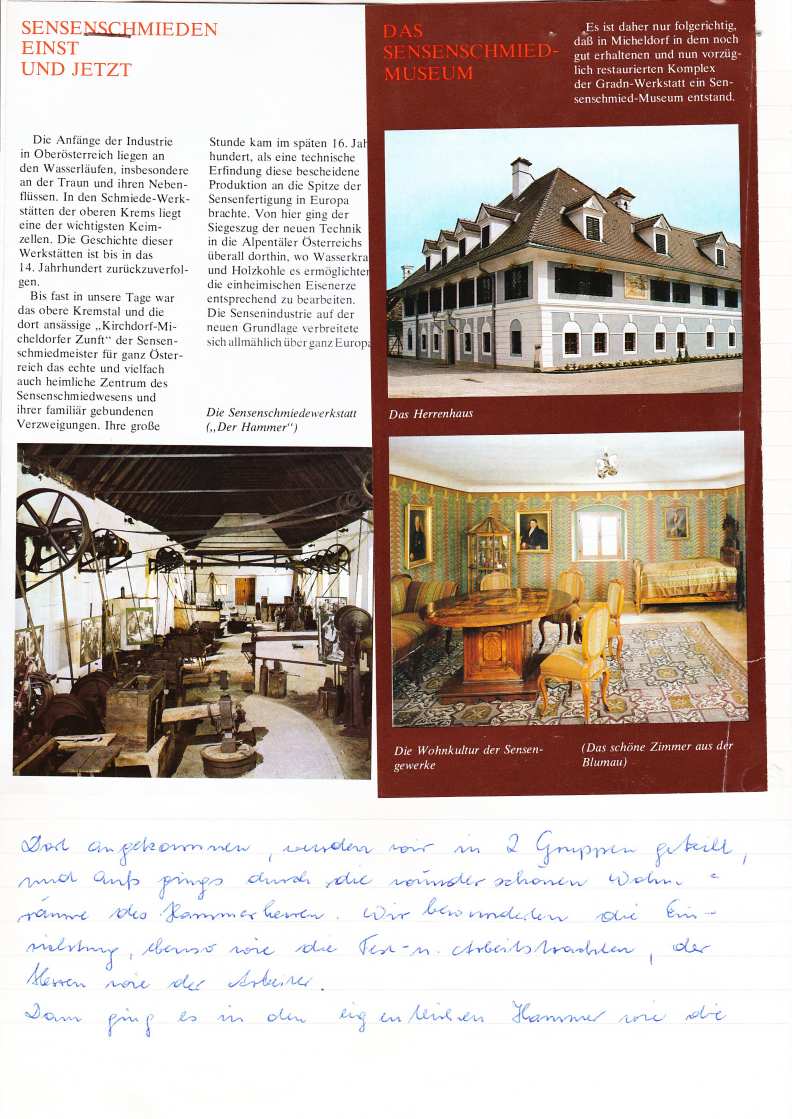 SENSENSCHMIEDEN
EINST
UND JETZT
Die Anfänge der Industrie
in Oberösterreich liegen an
den Wasserläufen, insbesondere
an der Traun und ihren Neben-
flüssen. In den Schmiede-Werk-
stätten der oberen Krems liegt
eine der wichtigsten Keim-
zellen. Die Geschichte dieser
Werkstätten ist bis in das
14. Jahrhundert zurückzuverfol-
gen.
Bis fast in unsere Tage war
das obere Kremstal und die
dort ansässige „Kirchdorf-Mi-
cheldorfer Zunft“ der Sensen-
schmiedmeister für ganz Öster-
reich das echte und vielfach
auch heimliche Zentrum des
Sensenschmiedwesens und
ihrer familiär gebundenen
Verzweigungen. Ihre große
Stunde kam im späten 16. Jah
hundert, als eine technische
Erfindung diese bescheidene
Produktion an die Spitze der
Sensenfertigung in Europa
brachte. Von hier ging der
Siegeszug der neuen Technik
in die Alpentäler Österreichs
überall dorthin, wo Wasserkra
und Holzkohle es ermöglichten
die einheimischen Eisenerze
entsprechend zu bearbeiten.
Die Sensenindustrie auf der
neuen Grundlage verbreitete
sich allmählich über ganz Europa
Die Sensenschmiedewerkstatt
(„Der Hammer“)
DAS
SENSENSCHMIED-
MUSEUM
Es ist daher nur folgerichtig,
daß in Micheldorf in dem noch
gut erhaltenen und nun vorzüg-
lich restaurierten Komplex
der Gradn-Werkstatt ein Sen-
senschmied-Museum entstand.
Das Herrenhaus
Die Wohnkultur der Sensen-
gewerke
(Das schöne Zimmer aus der
Blumau)
Dort angekommen, wurden wir in 2 Gruppen geteilt,
und aufs gings durch die wunderschönen Wohn-
räume des Hammerherren. Wir bewunderten die Ein-
richtung, ebenso wie die Fest- u. Arbeitstrachten, der
Herren wie der Arbeiter.
Dann ging es in den eigentlichen Hammer wie die